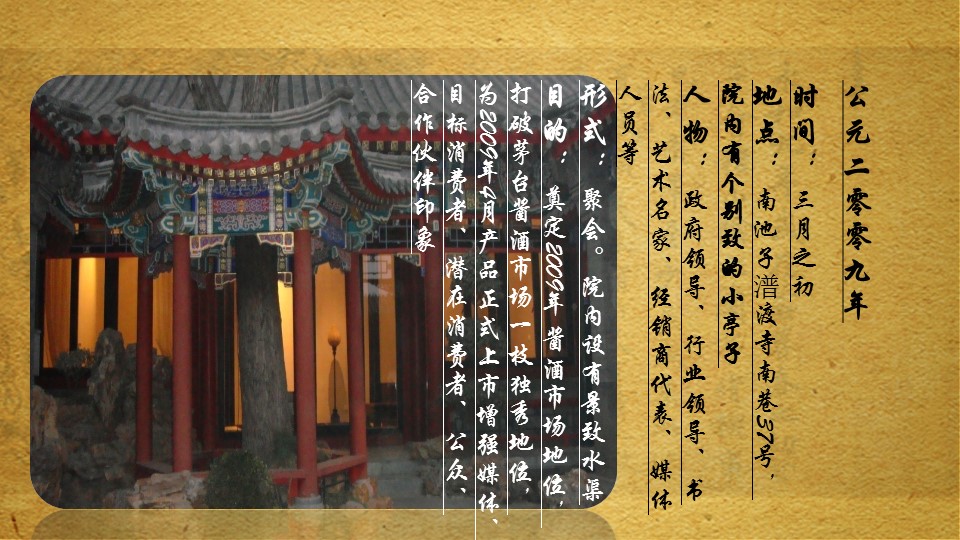 公元二零零九年
时间：三月之初
地点：南池子潽渡寺南巷37号，
院内有个别致的小亭子
人物：政府领导、行业领导、书
法、艺术名家、经销商代表、媒体
人员等
形式：聚会。院内设有景致水渠
目的：奠定2009年酱酒市场地位，
打破茅台酱酒市场一枝独秀地位，
为2009年4月产品正式上市增强媒体、
目标消费者、潜在消费者、公众、
合作伙伴印象